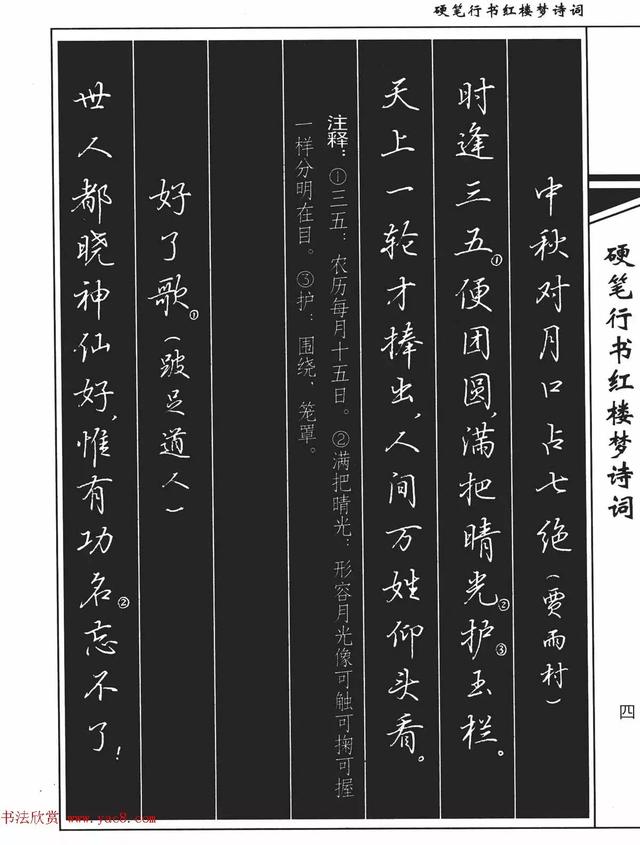 硬笔行书红楼梦诗词
硬笔行书红楼梦诗词
四
中秋对月口占七绝（贾雨村）
时逢三五①便团圆，满把晴光②护③玉栏。
天上一轮才捧出，人间万姓仰头看。
注释：①三五：农历每月十五日。②满把晴光：形容月光像可触可掬可握
一样分明在目。③护：围绕、笼罩。
好了歌①（跛足道人）
世人都晓神仙好，惟有功名②忘不了！
书法欣赏 www.yac8.com